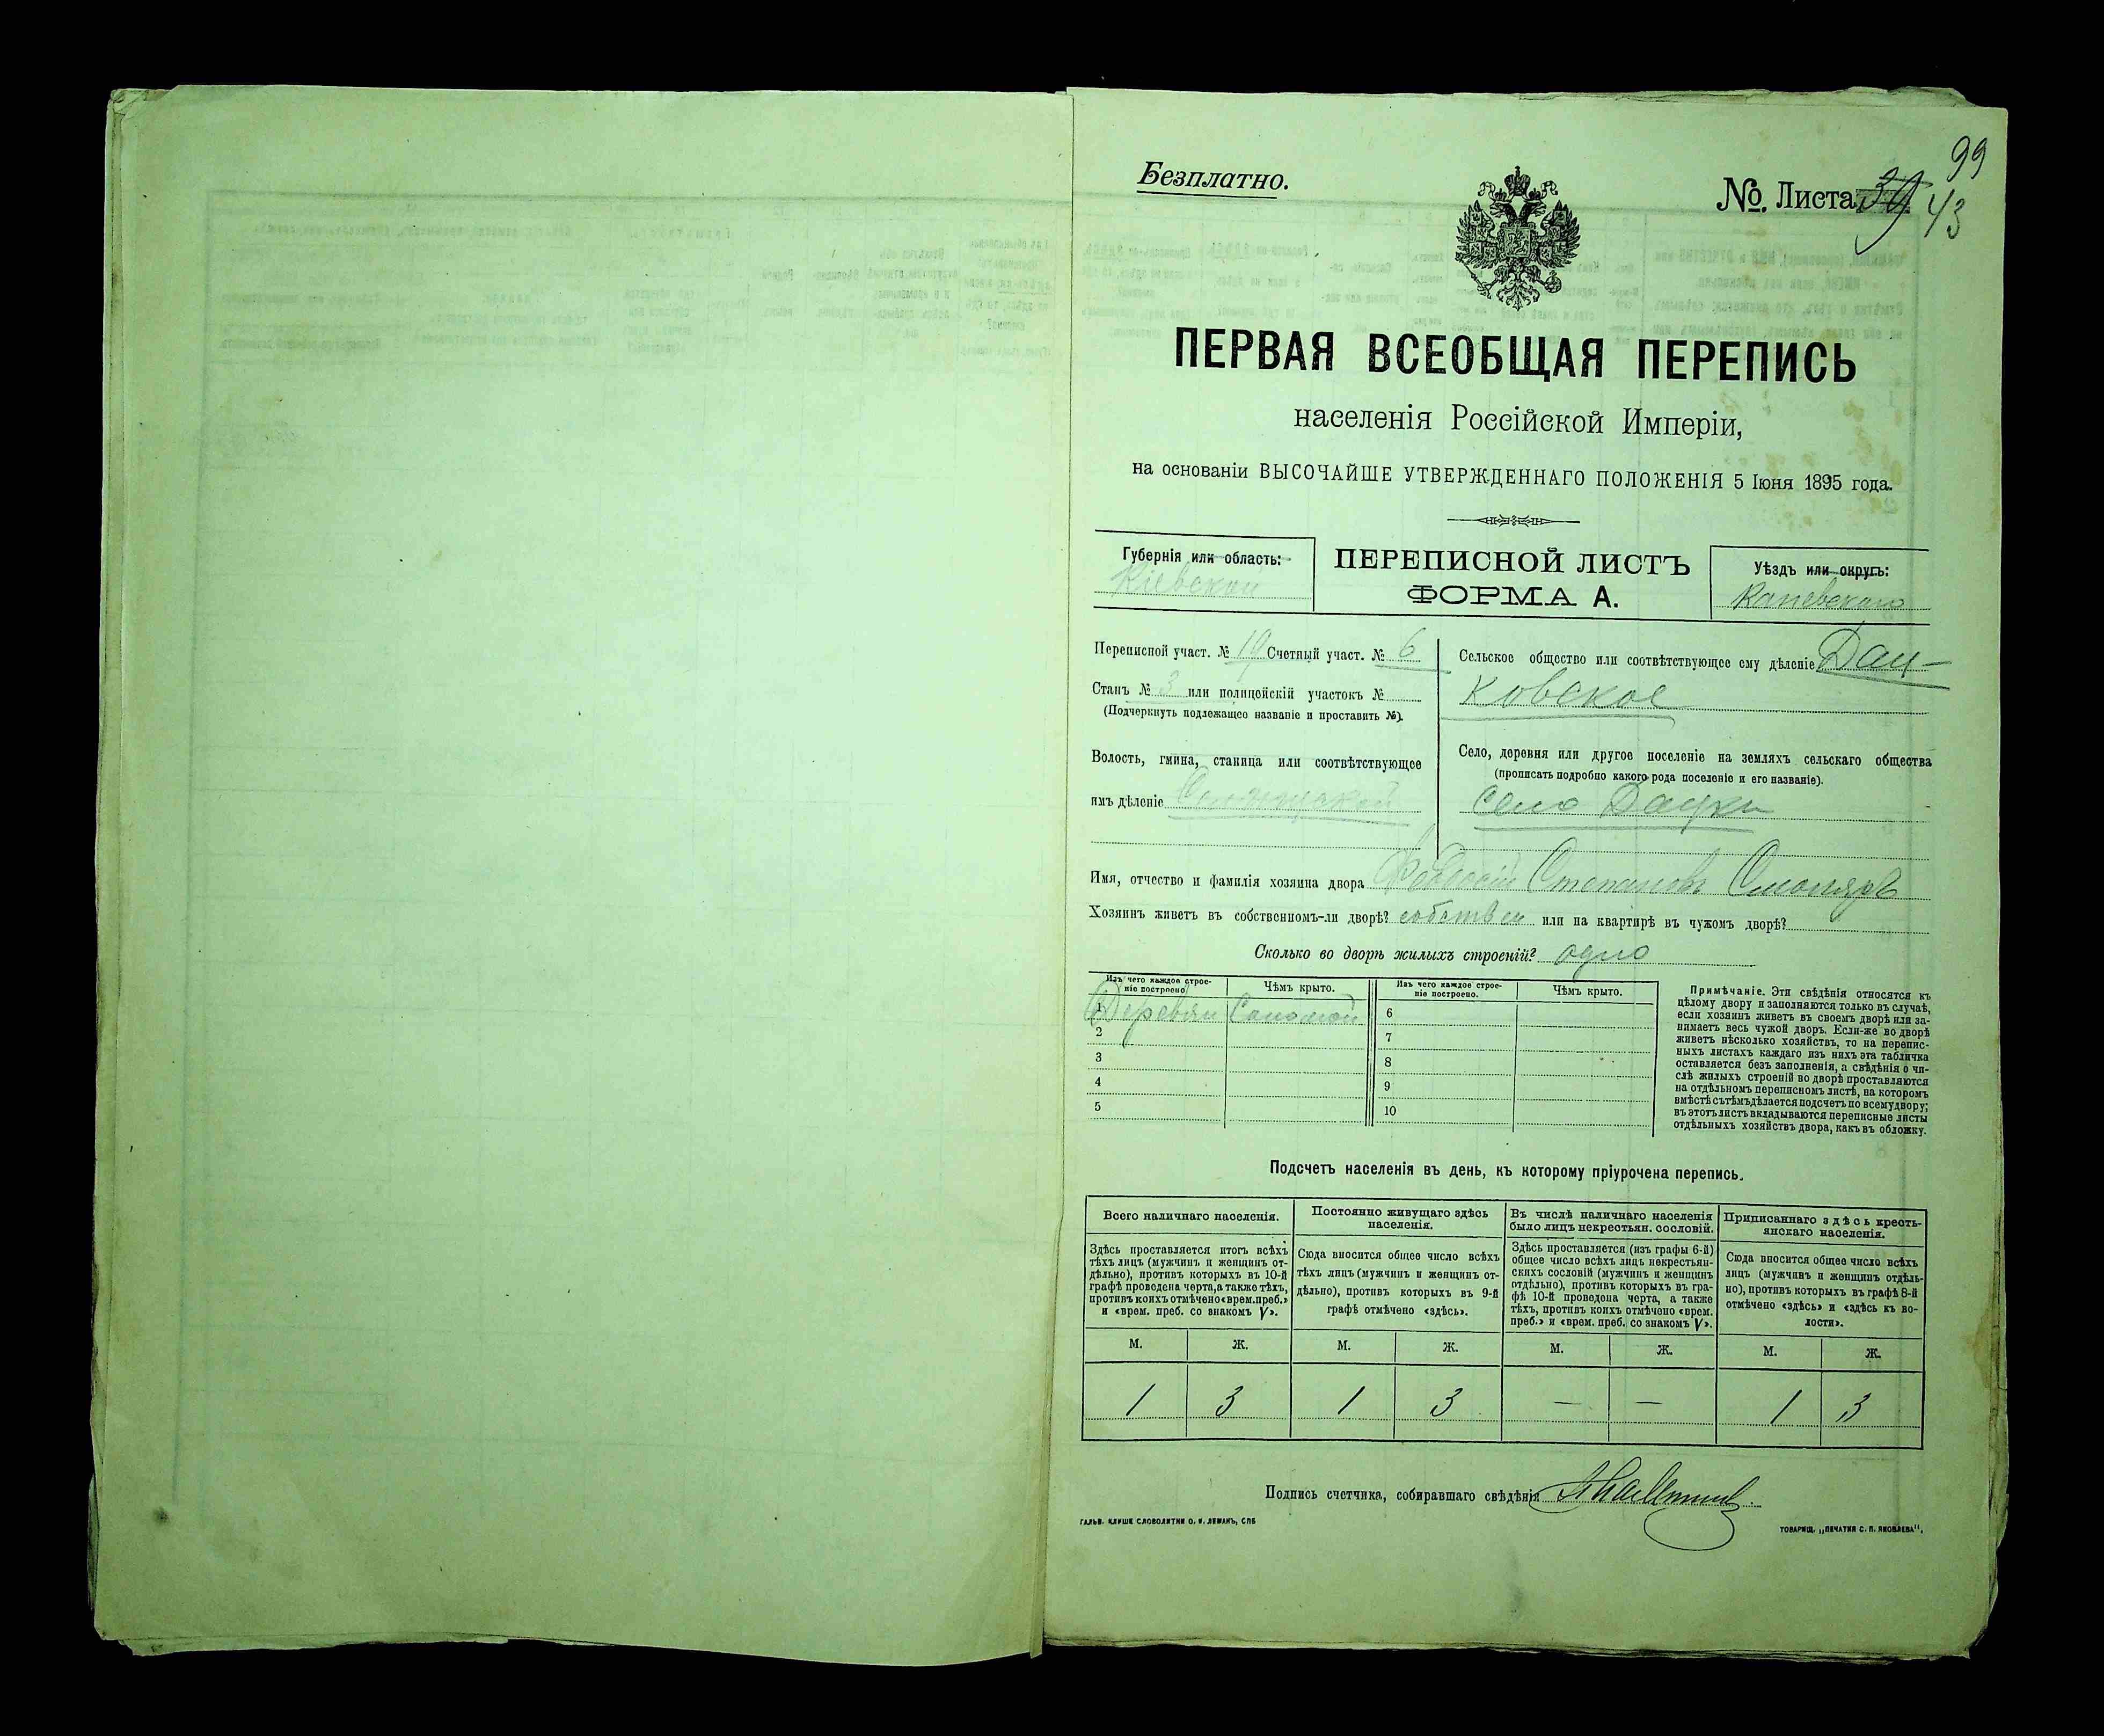 99
Безплатно.
№. Листа 39 43
ПЕРВАЯ ВСЕОБЩАЯ ПЕРЕПИСЬ
населенія Россійской Имперіи,
на основаніи ВЫСОЧАЙШЕ УТВЕРЖДЕННАГО ПОЛОЖЕНІЯ 5 Іюня 1895 года.
Губернія или область:
Кіевской
ПЕРЕПИСНОЙ ЛИСТЪ
ФОРМА А.
Уѣздъ или округъ:
Каневскаго
Переписной участ. № 19 Счетный участ. № 6
Станъ № 3 или полицейскій участокъ №
(Подчеркнуть подлежащее названіе и проставить №).
Волость, гмина, станица или соотвѣтствующее
имъ дѣленіе
Сельское общество или соотвѣтствующее ему дѣленіе Дац-
ковское
Село, деревня или другое поселеніе на земляхъ сельскаго общества
(прописать подробно какого рода поселеніе и его названіе).
село Дацки
Имя, отчество и фамилія хозяина двора Феодосій Степановъ Смоляръ
Хозяинъ живетъ въ собственномъ-ли дворѣ? собствен или на квартирѣ въ чужомъ дворѣ?
Сколько во дворѣ жилыхъ строеній? одно
Изъ чего каждое строе-
ніе построено.
Чѣмъ крыто.
Изъ чего каждое строе-
ніе построено.
Чѣмъ крыто.
1 Деревян Соломой
2
3
4
5
6
7
8
9
10
Примѣчаніе. Эти свѣдѣнія относятся къ
цѣлому двору и заполняются только въ случаѣ,
если хозяинъ живетъ въ своемъ дворѣ или за-
нимаетъ весь чужой дворъ. Если-же во дворѣ
живетъ нѣсколько хозяйствъ, то на перепис-
ныхъ листахъ каждаго изъ нихъ эта табличка
оставляется безъ заполненія, а свѣдѣнія о чи-
слѣ жилыхъ строеній во дворѣ проставляются
на отдѣльномъ переписномъ листѣ, на которомъ
вмѣстѣ съ тѣмъ дѣлается подсчетъ по всему двору;
въ этотъ листъ вкладываются переписные листы
отдѣльныхъ хозяйствъ двора, какъ въ обложку.
Подсчетъ населенія въ день, къ которому пріурочена перепись.
Всего наличнаго населенія.
Здѣсь проставляется итогъ всѣхъ
тѣхъ лицъ (мужчинъ и женщинъ от-
дѣльно), противъ которыхъ въ 10-й
графѣ проведена черта, а также тѣхъ,
противъ коихъ отмѣчено «врем. преб.»
и «врем. преб. со знакомъ V».
Постоянно живущаго здѣсь
населенія.
Сюда вносится общее число всѣхъ
тѣхъ лицъ (мужчинъ и женщинъ от-
дѣльно), противъ которыхъ въ 9-й
графѣ отмѣчено «здѣсь».
Въ числѣ наличнаго населенія
было лицъ некрестьян. сословій.
Здѣсь проставляется (изъ графы 6-й)
общее число всѣхъ лицъ некрестьян-
скихъ сословій (мужчинъ и женщинъ
отдѣльно), противъ которыхъ въ гра-
фѣ 10-й проведена черта, а также
тѣхъ, противъ коихъ отмѣчено «врем.
преб.» и «врем. преб. со знакомъ V».
Приписаннаго здѣсь кресть-
янскаго населенія.
Сюда вносится общее число всѣхъ
лицъ (мужчинъ и женщинъ отдѣль-
но), противъ которыхъ въ графѣ 8-й
отмѣчено «здѣсь» и «здѣсь къ во-
лости».
М. Ж. М. Ж. М. Ж. М. Ж.
1 3 1 3 — — 1 3
Подпись счетчика, собиравшаго свѣдѣнія
ГАЛЬВ. КЛИШЕ СЛОВОЛИТНИ О. И. ЛЕМАНЪ, СПБ
ТОВАРИЩ. „ПЕЧАТНЯ С. П. ЯКОВЛЕВА",